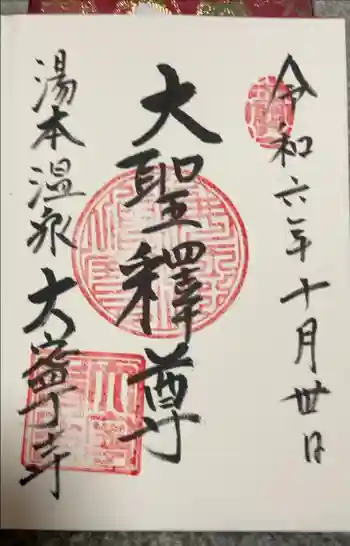 令和六年十月卅日
大聖釋尊
湯本温泉 大寧寺